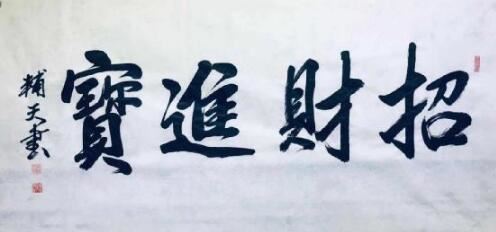 招財進寶
輔天書